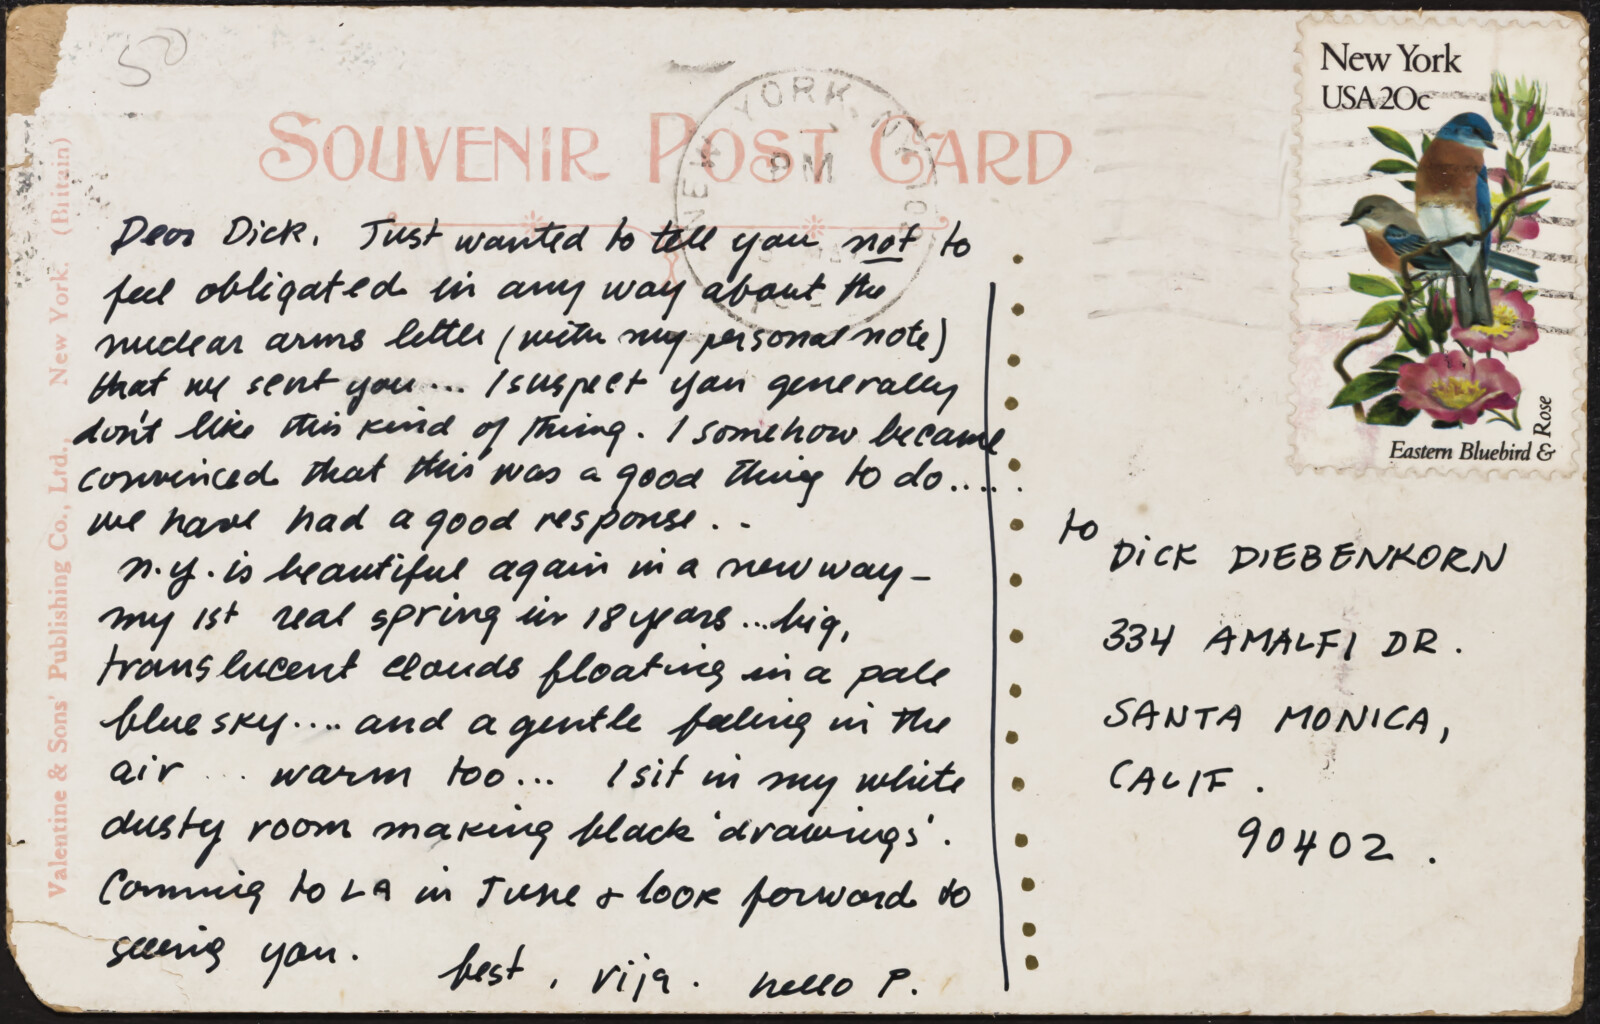 50
SOUVENIR POST CARD
NEW YORK, NY
PM
New York
USA 20c
Eastern Bluebird & Rose
Valentine & Sons' Publishing Co., Ltd., New York. (Britain)
Dear Dick. Just wanted to tell you not to
feel obligated in any way about the
nuclear arms letter (with my personal note)
that we sent you... I suspect you generally
don't like this kind of thing. I somehow became
convinced that this was a good thing to do.....
we have had a good response..
N.Y. is beautiful again in a new way -
my 1st real spring in 18 years... big,
translucent clouds floating in a pale
blue sky.... and a gentle feeling in the
air ... warm too... I sit in my white
dusty room making black 'drawings'.
Coming to LA in June & look forward to
seeing you.
best, vija. hello P.
to
DICK DIEBENKORN
334 AMALFI DR.
SANTA MONICA,
CALIF.
90402.